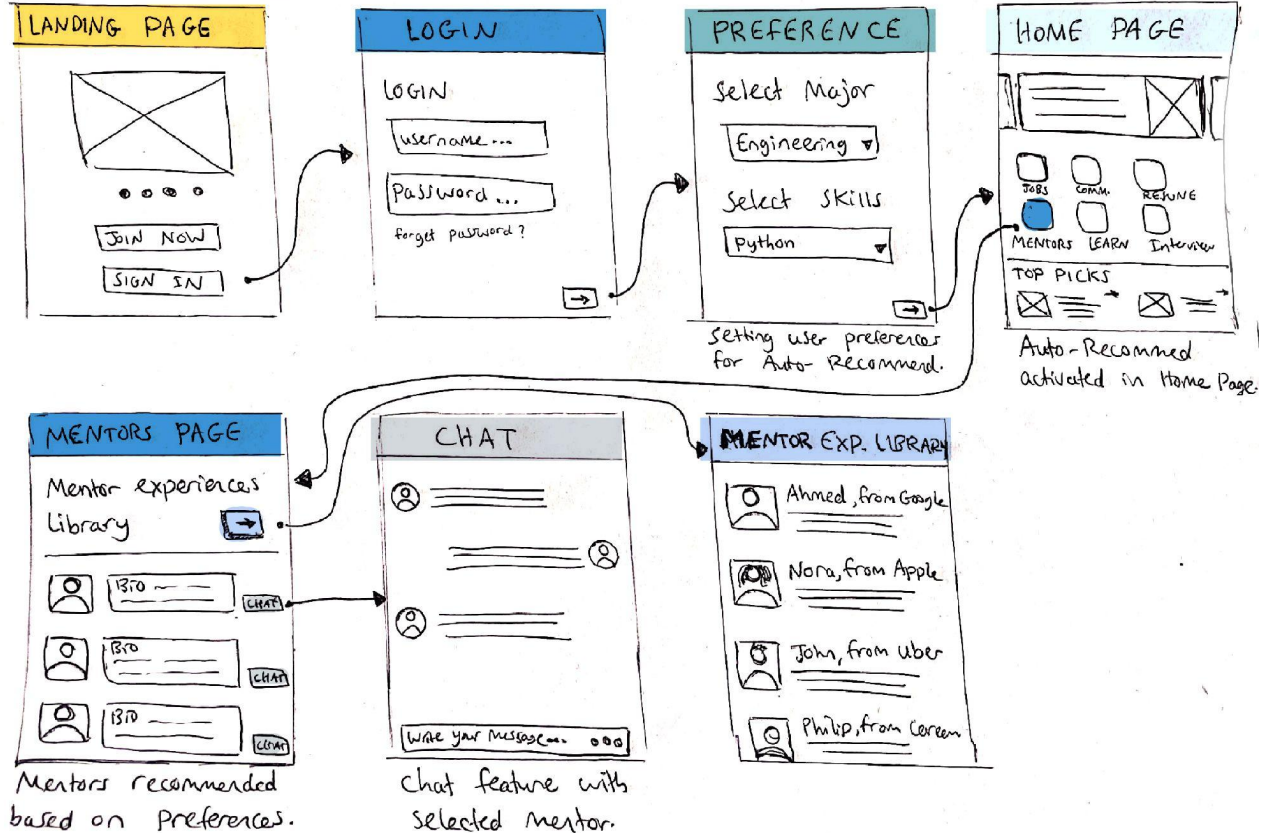 LANDING PAGE
JOIN NOW
SIGN IN
LOGIN
LOGIN
username...
Password...
forget password?
PREFERENCE
Select Major
Engineering
Select Skills
Python
Setting user preferences
for Auto-Recommend.
HOME PAGE
JOBS COMM. RESUNE
MENTORS LEARN Interview
TOP PICKS
Auto-Recommed
activated in Home Page.
MENTORS PAGE
Mentor experiences
Library
BIO
CHAT
BIO
CHAT
BIO
CHAT
Mentors recommended
based on Preferences.
CHAT
Write your Message...
Chat feature with
selected mentor.
MENTOR EXP. LIBRARY
Ahmed, from Google
Nora, from Apple
John, from uber
Philip, from Careem